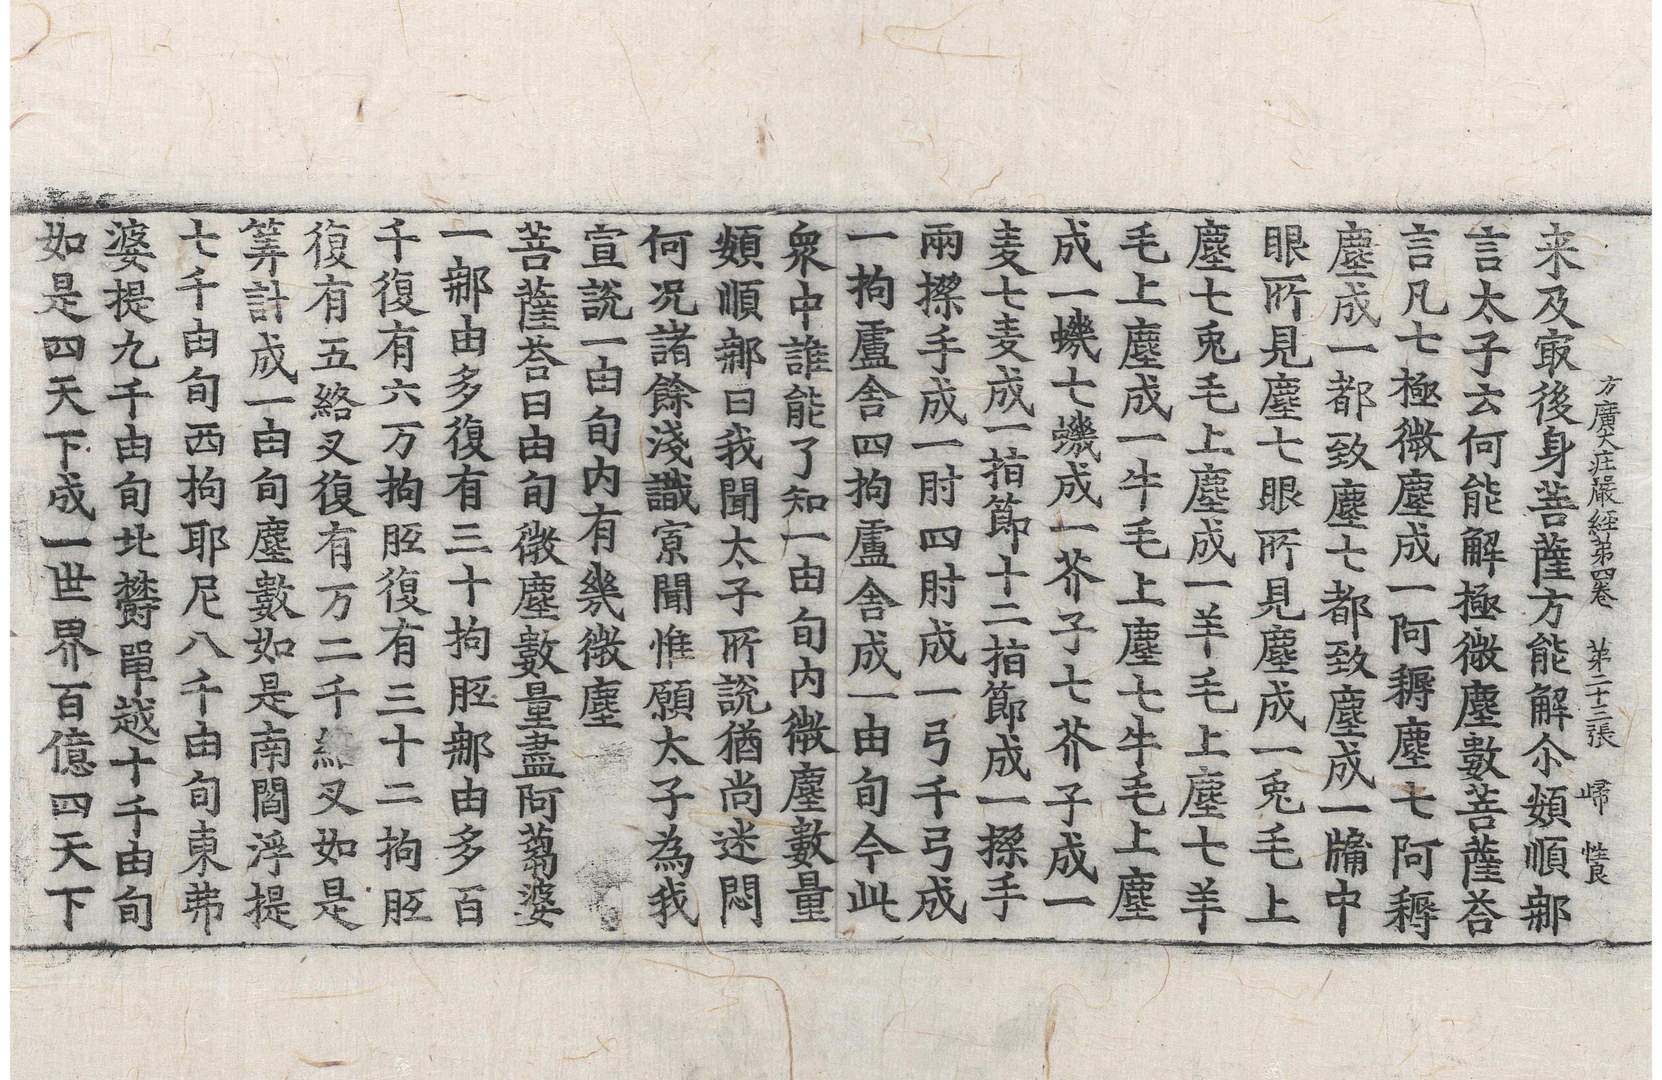 方廣大莊嚴經第四卷 第二十三張 歸 性良
来及㝡後身菩薩方能解尒頞順𨚗
言太子云何能解極微塵數菩薩荅
言凡七極微塵成一阿耨塵七阿耨
塵成一都致塵七都致塵成一牖中
眼所見塵七眼所見塵成一兎毛上
塵七兎毛上塵成一羊毛上塵七羊
毛上塵成一牛毛上塵七牛毛上塵
成一蟣七蟣成一芥子七芥子成一
麦七麦成一指節十二指節成一搩手
兩搩手成一肘四肘成一弓千弓成
一拘盧舍四拘盧舍成一由旬今此
衆中誰能了知一由旬內微塵數量
頞順𨚗曰我聞太子所說猶尚迷悶
何况諸餘淺識寡聞惟願太子為我
宣說一由旬內有幾微塵
菩薩荅曰由旬微塵數量盡阿蒭婆
一𨚗由多復有三十拘胝𨚗由多百
千復有六万拘胝復有三十二拘胝
復有五絡叉復有万二千絡叉如是
筭計成一由旬塵數如是南閻浮提
七千由旬西拘耶尼八千由旬東弗
婆提九千由旬北欝單越十千由旬
如是四天下成一世界百億四天下